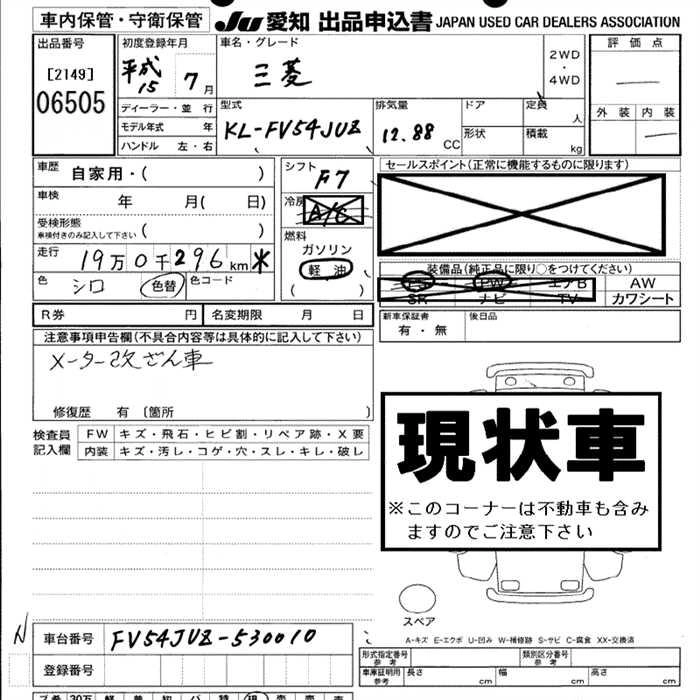 車内保管・守衛保管
JU 愛知 出品申込書 JAPAN USED CAR DEALERS ASSOCIATION
出品番号
[2149]
06505
初度登録年月
平成15 7月
車名・グレード
三菱
2WD
・
4WD
評価点
外装 内装
ディーラー・並行
モデル年式 年
ハンドル 左・右
型式
KL-FV54JUZ
排気量
12.88 CC
ドア
形状
定員
人
積載
kg
車歴 自家用・( )
車検 年 月( 日)
受検形態
車検付きのみ記入して下さい ( )
走行 19万0千296km *
色 シロ 色替 色コード
シフト F7
冷房 A/C
燃料
ガソリン
軽油
( )
セールスポイント(正常に機能するものに限ります)
装備品(純正品に限り○をつけてください)
PS PW エアB AW
SR ナビ TV カワシート
R券 円 名変期限 月 日
新車保証書
有・無
後日品
注意事項申告欄(不具合内容等は具体的に記入して下さい)
メーター改ざん車
修復歴 有 〔箇所 〕
検査員
記入欄
FW キズ・飛石・ヒビ割・リペア跡・X要
内装 キズ・汚レ・コゲ・穴・スレ・キレ・破レ
現状車
※このコーナーは不動車も含み
ますのでご注意下さい
スペア
A-キズ E-エクボ U-凹み W-補修跡 S-サビ C-腐食 XX-交換済
N
車台番号 FV54JUZ-530010
登録番号
形式指定番号
参考
類別区分番号
参考
車庫証明用
参考
長さ cm 幅 cm 高さ cm